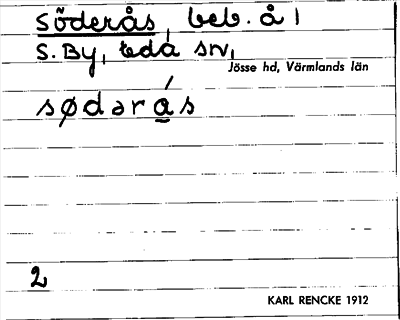 Söderås, beb. å 1
S. By, Eda sn,
Jösse hd, Värmlands län
sødərás
2
KARL RENCKE 1912